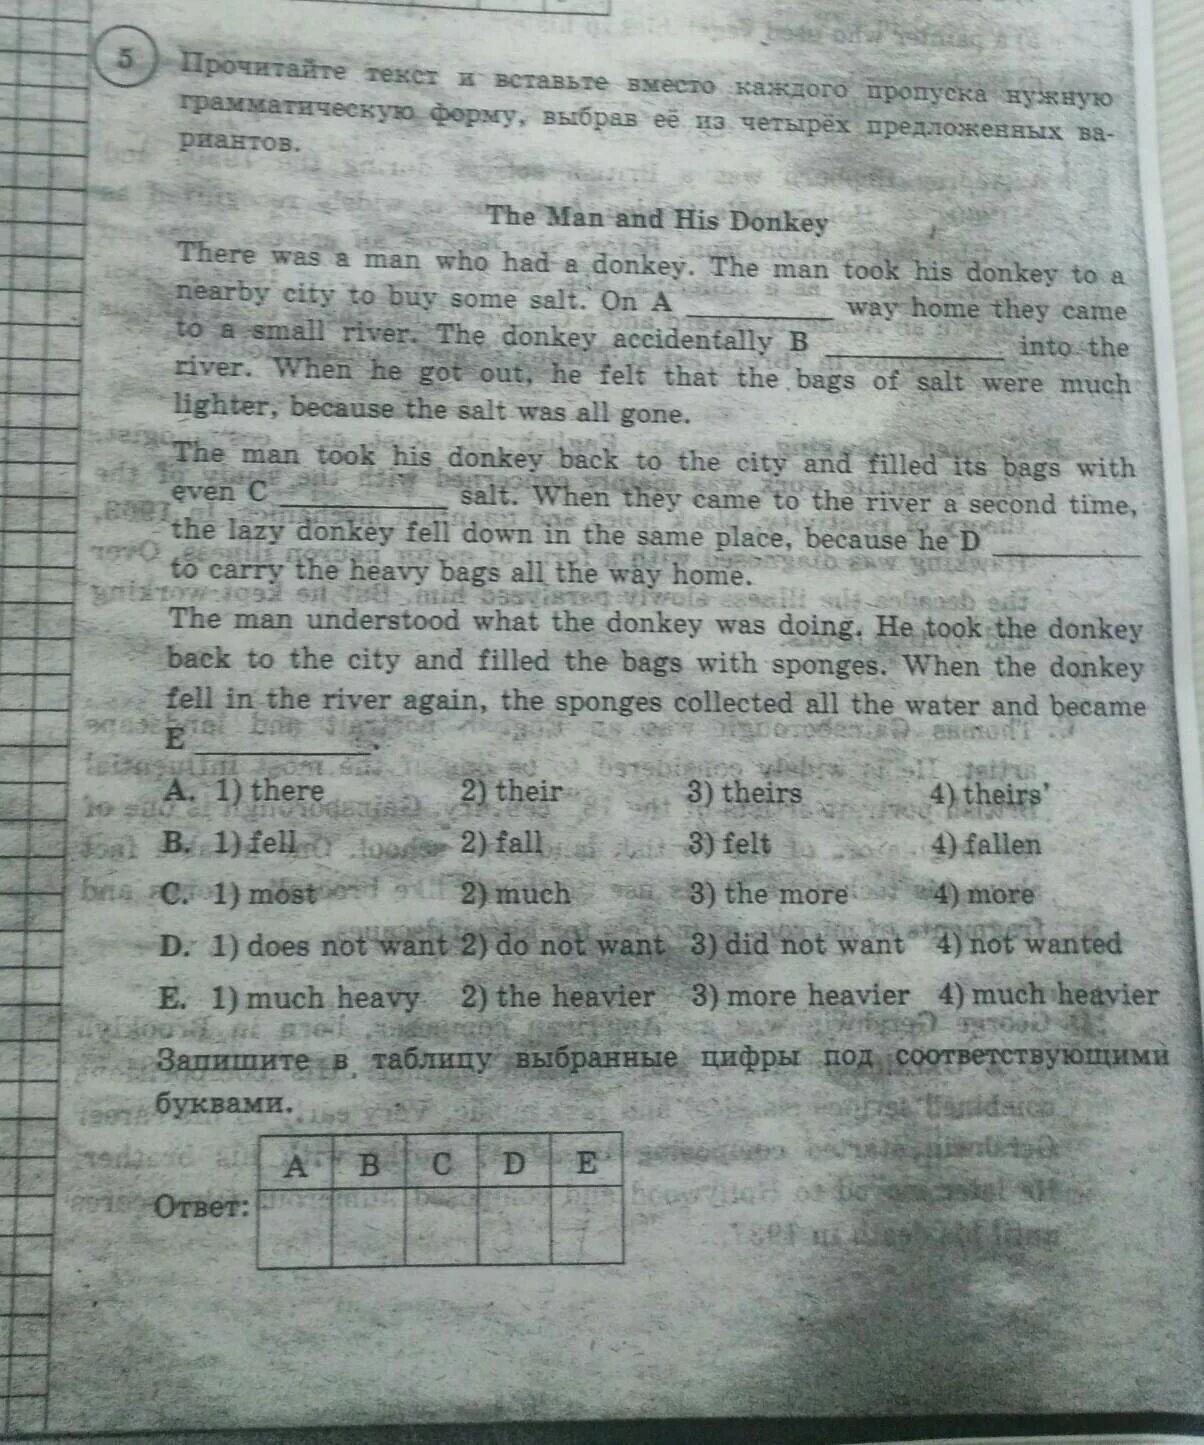 5
Прочитайте текст и вставьте вместо каждого пропуска нужную
грамматическую форму, выбрав её из четырёх предложенных ва-
риантов.
The Man and His Donkey
There was a man who had a donkey. The man took his donkey to a
nearby city to buy some salt. On A __________ way home they came
to a small river. The donkey accidentally B __________ into the
river. When he got out, he felt that the bags of salt were much
lighter, because the salt was all gone.
The man took his donkey back to the city and filled its bags with
even C __________ salt. When they came to the river a second time,
the lazy donkey fell down in the same place, because he D __________
to carry the heavy bags all the way home.
The man understood what the donkey was doing. He took the donkey
back to the city and filled the bags with sponges. When the donkey
fell in the river again, the sponges collected all the water and became
E __________.
A. 1) there 2) their 3) theirs 4) theirs'
B. 1) fell 2) fall 3) felt 4) fallen
C. 1) most 2) much 3) the more 4) more
D. 1) does not want 2) do not want 3) did not want 4) not wanted
E. 1) much heavy 2) the heavier 3) more heavier 4) much heavier
Запишите в таблицу выбранные цифры под соответствующими
буквами.
A B C D E
Ответ: